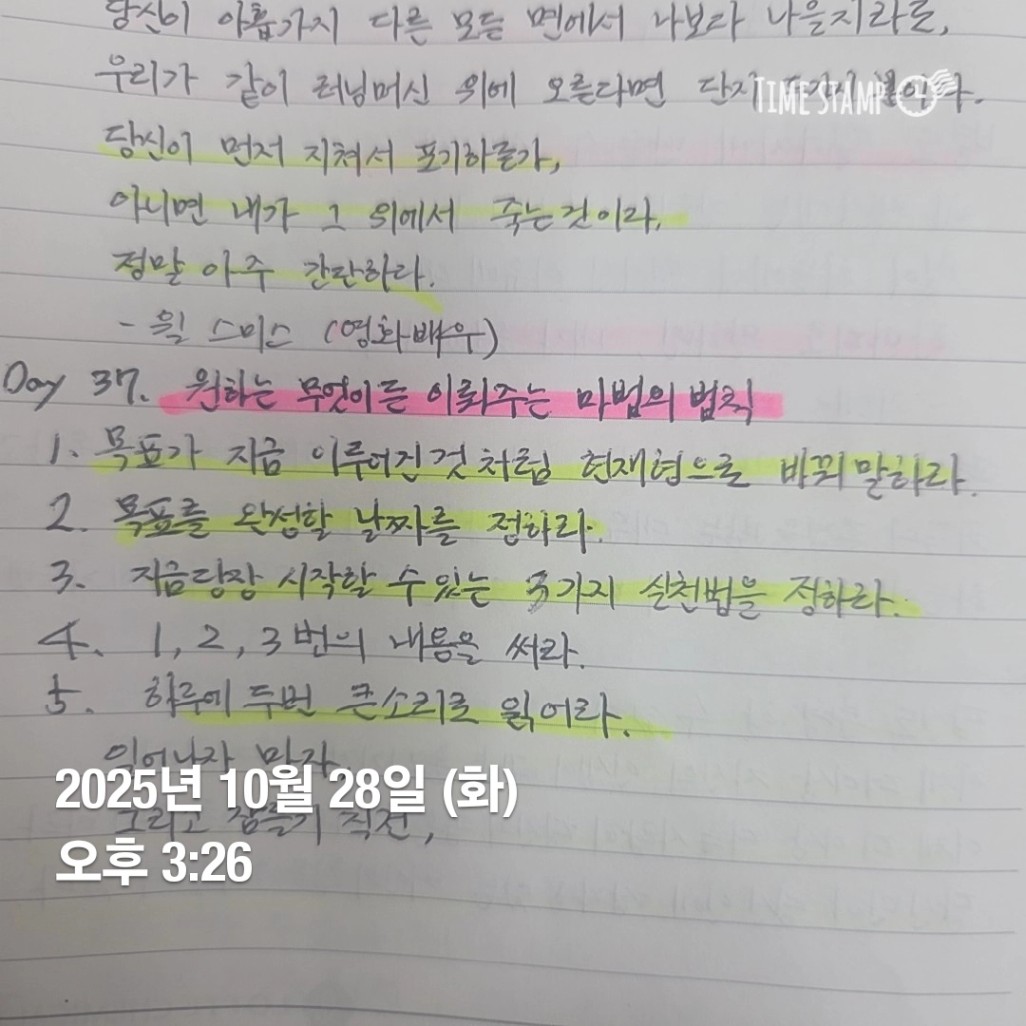 당신이 아홉가지 다른 모든 면에서 나보다 나을지라도,
우리가 같이 러닝머신 위에 오른다면 단지
TIME STAMP
당신이 먼저 지쳐서 포기하든가,
아니면 내가 그 위에서 죽는것이다.
정말 아주 간단하다.
- 윌 스미스 (영화배우)
Day 37. 원하는 무엇이든 이뤄주는 마법의 법칙
1. 목표가 지금 이루어진것처럼 현재형으로 바꿔말하라.
2. 목표를 완성할 날짜를 정하라.
3. 지금당장 시작할 수 있는 3가지 실천법을 정하라.
4. 1, 2, 3번의 내용을 써라.
5. 하루에 두번 큰소리로 읽어라.
일어나자 마자
2025년 10월 28일 (화)
그리고 잠들기 직전,
오후 3:26